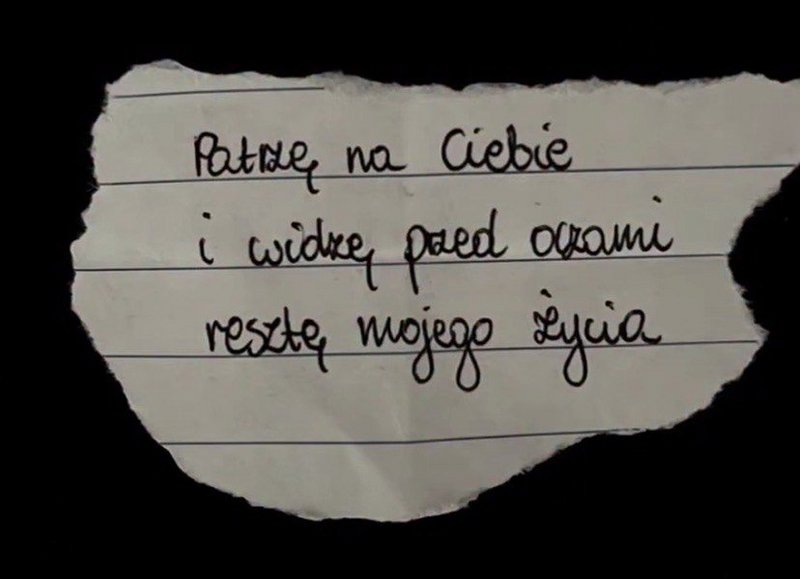 Patrzę na Ciebie
i widzę przed oczami
resztę mojego życia